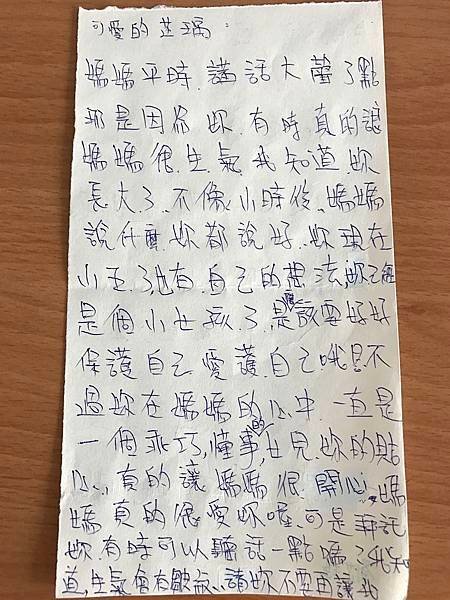 可愛的芷瑀：
媽媽平時.講話大聲了點
那是因為妳.有時.真的讓
媽媽很.生氣.我知道.妳
長大了.不像小時候、媽媽
說什麼.妳都說好.妳現在
小五了,也有.自己的想法,妳已經
是個小女孩了.是應該要好好
保護自己愛護.自己哦!只不
過妳在媽媽的心中.一直是
一個乖巧,懂事的,女兒.妳的貼
心.真的讓.媽媽很.開心、媽
媽真的很愛妳喔.可是.拜託
妳有時可以聽話一點嗎?我知
道,生氣會有皺紋.請妳不要再讓我